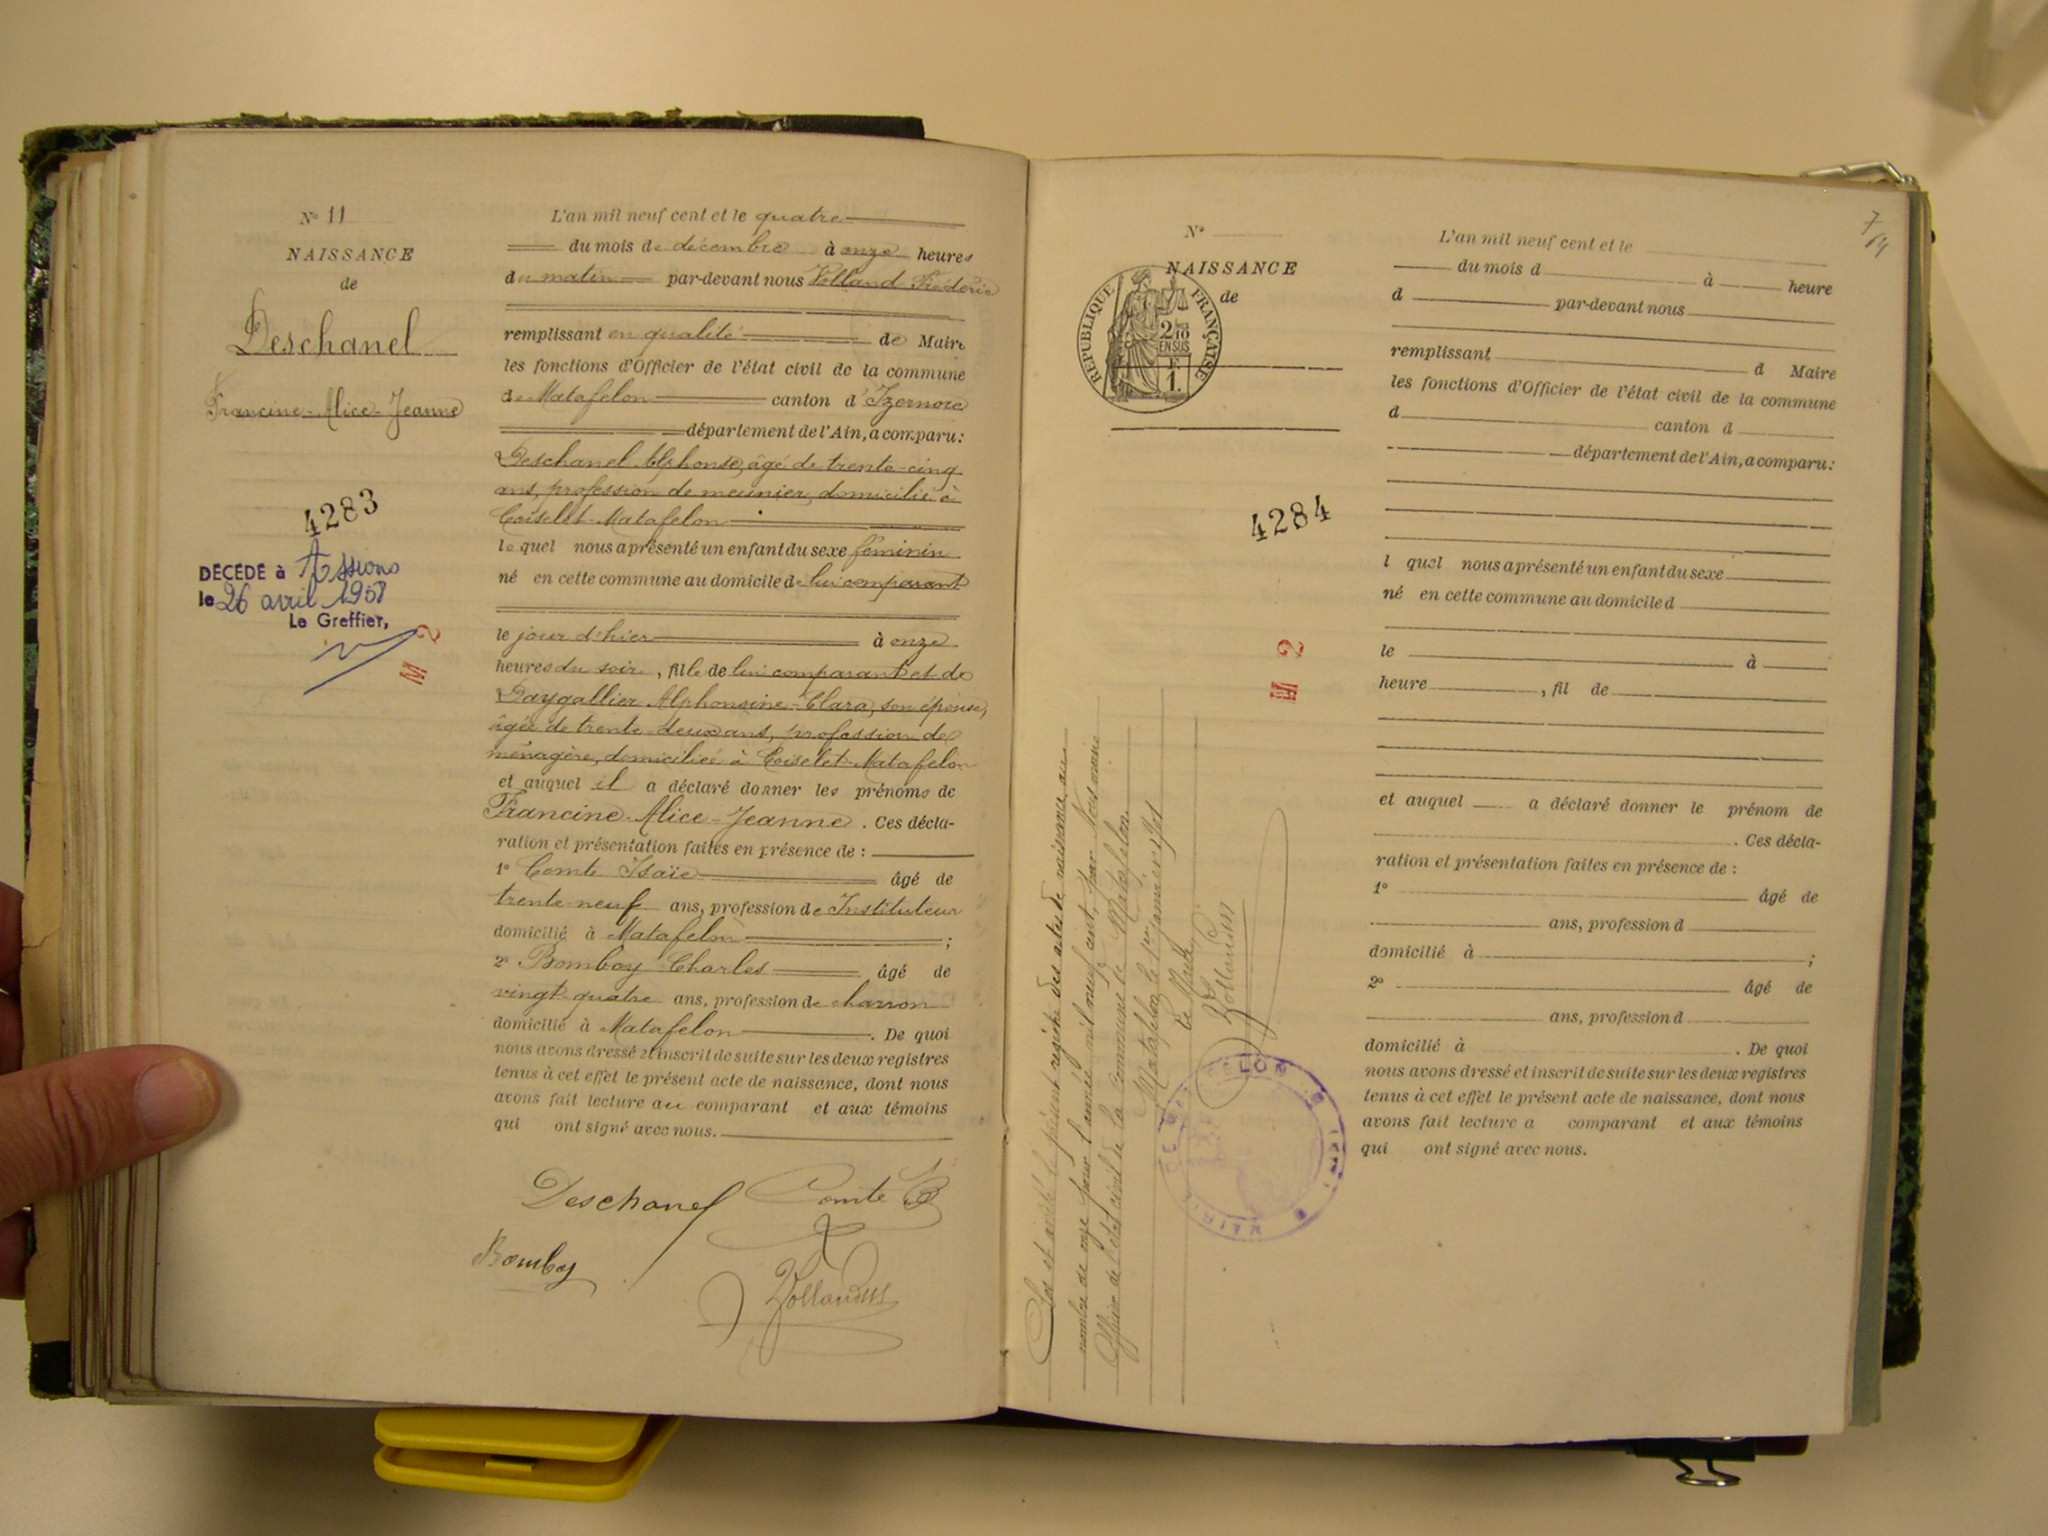 N° 11
NAISSANCE
de
Deschanel
Francine-Alice-Jeanne
4283
DÉCÉDÉ à Assions
le 26 avril 1958
Le Greffier,
M 2
L'an mil neuf cent et le quatre
du mois de décembre à onze heures
du matin par-devant nous Volland Frédéric
remplissant en qualité de Maire
les fonctions d'Officier de l'état civil de la commune
de Matafelon canton d'Izernore
département de l'Ain, a comparu:
Deschanel Alphonse, âgé de trente-cinq
ans, profession de meunier, domicilié à
Coiselet-Matafelon
lequel nous a présenté un enfant du sexe féminin
né en cette commune au domicile de lui comparant
le jour d'hier à onze
heures du soir, fille de lui comparant et de
Paygallier Alphonsine-Clara, son épouse,
âgée de trente-deux ans, profession de
ménagère, domiciliée à Coiselet-Matafelon
et auquel il a déclaré donner les prénoms de
Francine-Alice-Jeanne. Ces décla-
ration et présentation faites en présence de:
1° Comte Isaïe âgé de
trente-neuf ans, profession de Instituteur
domicilié à Matafelon;
2° Bomboy Charles âgé de
vingt-quatre ans, profession de charron
domicilié à Matafelon. De quoi
nous avons dressé et inscrit de suite sur les deux registres
tenus à cet effet le présent acte de naissance, dont nous
avons fait lecture au comparant et aux témoins
qui ont signé avec nous.
Deschanel Comte
Bomboy
Volland
7
14
N°
NAISSANCE
de
RÉPUBLIQUE FRANÇAISE
2/10
EN SUS
F.
1.
4284
M 2
L'an mil neuf cent et le
du mois d à heure
d par-devant nous
remplissant d Maire
les fonctions d'Officier de l'état civil de la commune
d canton d
département de l'Ain, a comparu:
l quel nous a présenté un enfant du sexe
né en cette commune au domicile d
le à
heure , fil de
et auquel a déclaré donner le prénom de
. Ces décla-
ration et présentation faites en présence de:
1° âgé de
ans, profession d
domicilié à ;
2° âgé de
ans, profession d
domicilié à . De quoi
nous avons dressé et inscrit de suite sur les deux registres
tenus à cet effet le présent acte de naissance, dont nous
avons fait lecture a comparant et aux témoins
qui ont signé avec nous.
Clos et arrêté le présent registre des actes de naissance au
nombre de onze pour l'année mil neuf cent, par Nous maire
Officier de l'état civil de la commune de Matafelon.
Matafelon le 1er janvier 1901
Le Maire,
Volland
MAIRIE DE MATAFELON